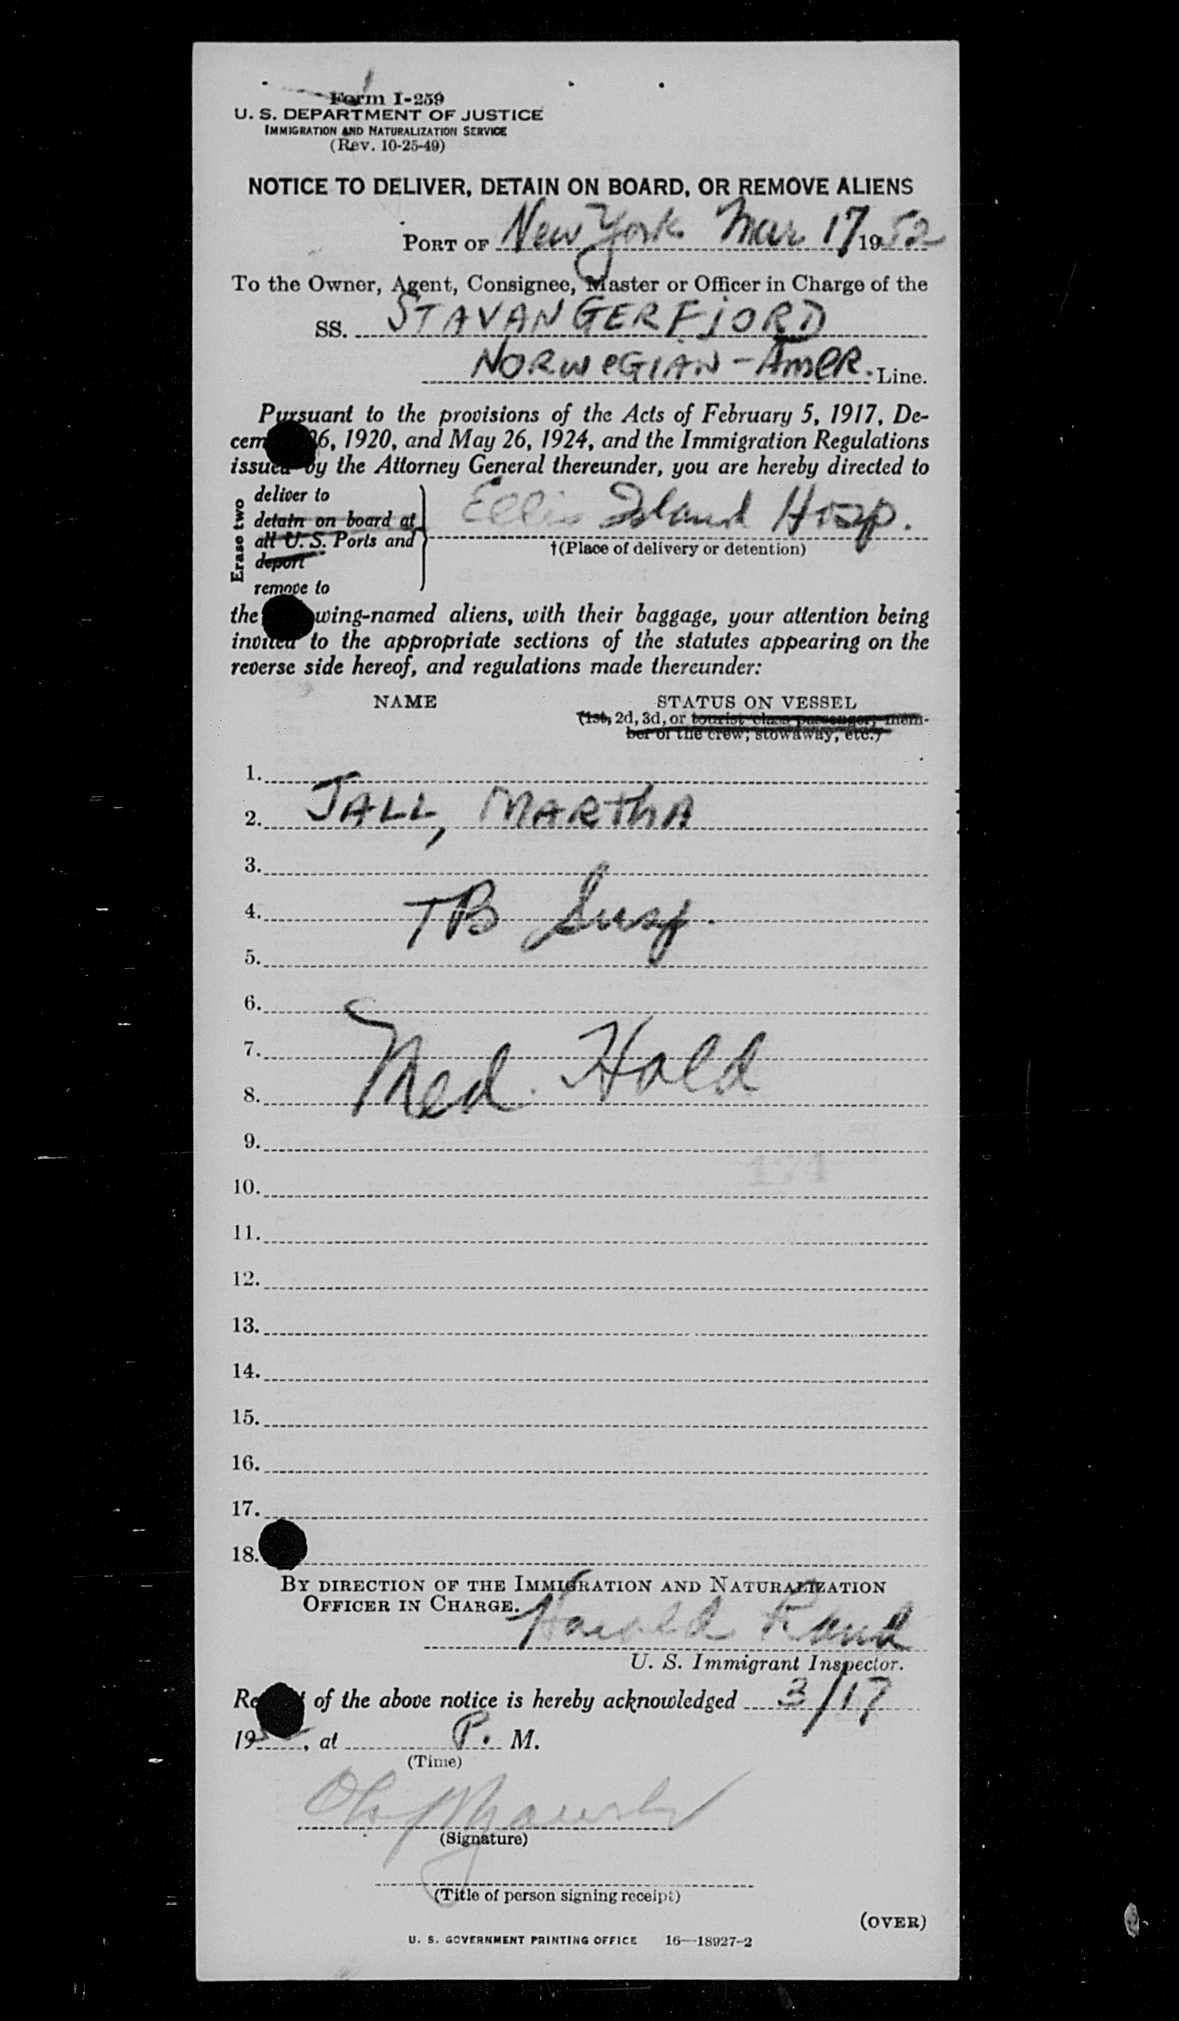 Form I-259
U. S. DEPARTMENT OF JUSTICE
IMMIGRATION AND NATURALIZATION SERVICE
(Rev. 10-25-49)
NOTICE TO DELIVER, DETAIN ON BOARD, OR REMOVE ALIENS
PORT OF New York Mar 17, 1952
To the Owner, Agent, Consignee, Master or Officer in Charge of the
SS. STAVANGERFJORD
NORWEGIAN-AMER. Line.
Pursuant to the provisions of the Acts of February 5, 1917, De-
cem 26, 1920, and May 26, 1924, and the Immigration Regulations
issued by the Attorney General thereunder, you are hereby directed to
Erase two
deliver to
detain on board at
all U. S. Ports and
deport
remove to
Ellis Island Hosp.
†(Place of delivery or detention)
the wing-named aliens, with their baggage, your attention being
invited to the appropriate sections of the statutes appearing on the
reverse side hereof, and regulations made thereunder:
NAME STATUS ON VESSEL
(1st, 2d, 3d, or tourist class passenger, mem-
ber of the crew, stowaway, etc.)
1.
2. JALL, MARTHA
3.
4. TB Susp.
5.
6.
7. Med. Hold
8.
9.
171
10.
11.
12.
13.
14.
15.
16.
17.
18.
BY DIRECTION OF THE IMMIGRATION AND NATURALIZATION
OFFICER IN CHARGE.
Harold Rand
U. S. Immigrant Inspector.
Re of the above notice is hereby acknowledged 3/17
19 , at P. M.
(Time)
(Signature)
(Title of person signing receipt)
(OVER)
U. S. GOVERNMENT PRINTING OFFICE 16—18927-2